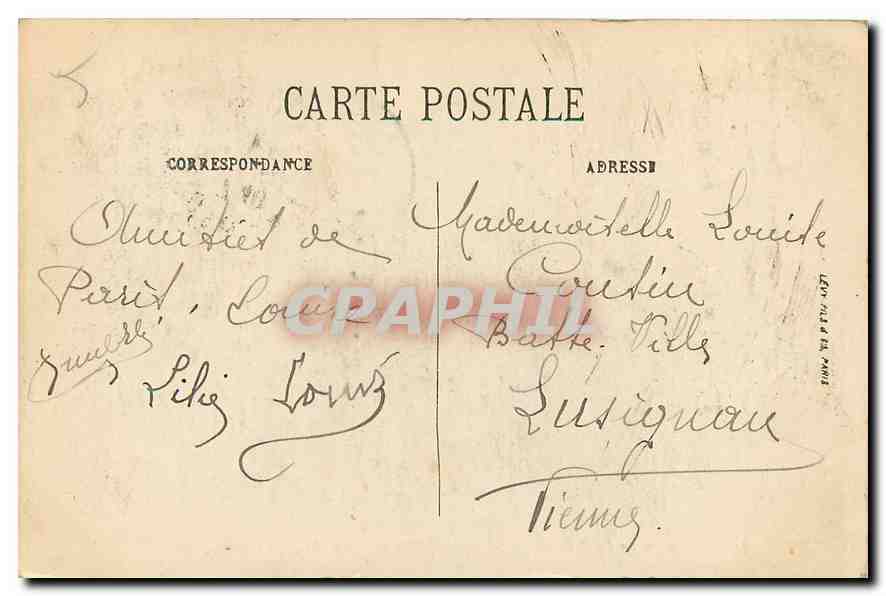 CARTE POSTALE
CORRESPONDANCE
Amitiés de
Paris. Louise
Lilie Louis
ADRESSE
Mademoiselle Louise
Coutin
Basse-Ville
Lusignan
Vienne.
LÉVY FILS & Cie, PARIS
CPAPHIL